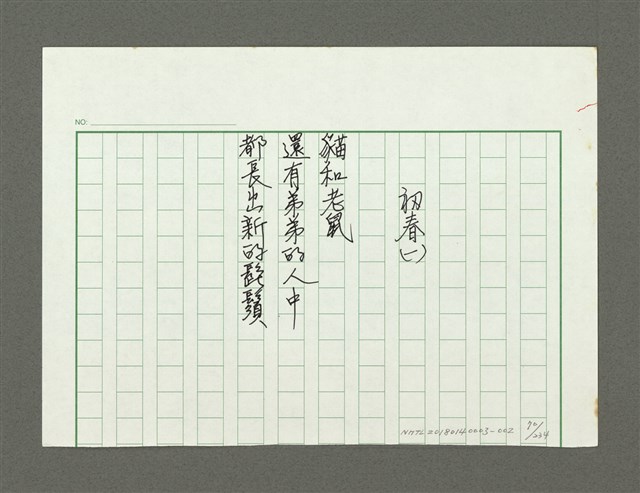 初春(一)
貓和老鼠
還有弟弟的人中
都長出新的髭鬚
NO:
NMTL20180140003-002
90/234